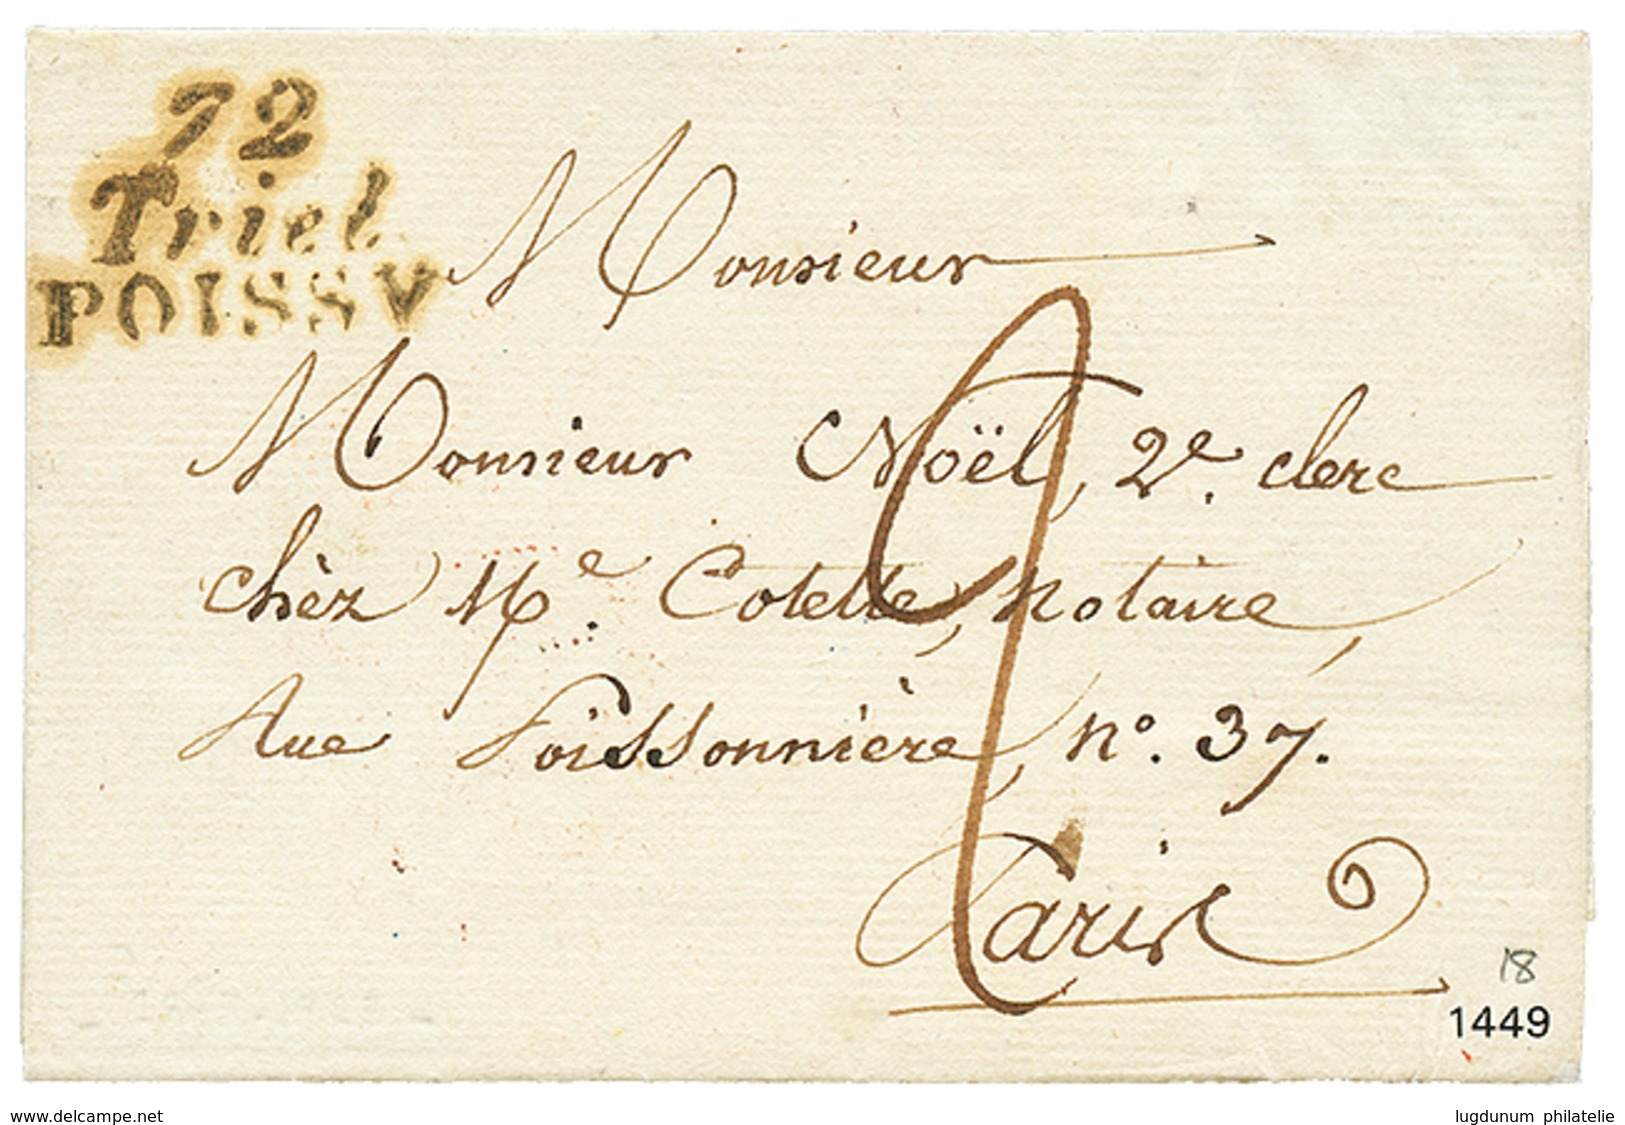 72
Triel
POISSY
Monsieur
Monsieur Noël, 2e. clerc
chèz Me. Cotelle, notaire,
Rue Poissonnière, no. 37.
Paris
2
18
1449
www.delcampe.net
lugdunum philatelie